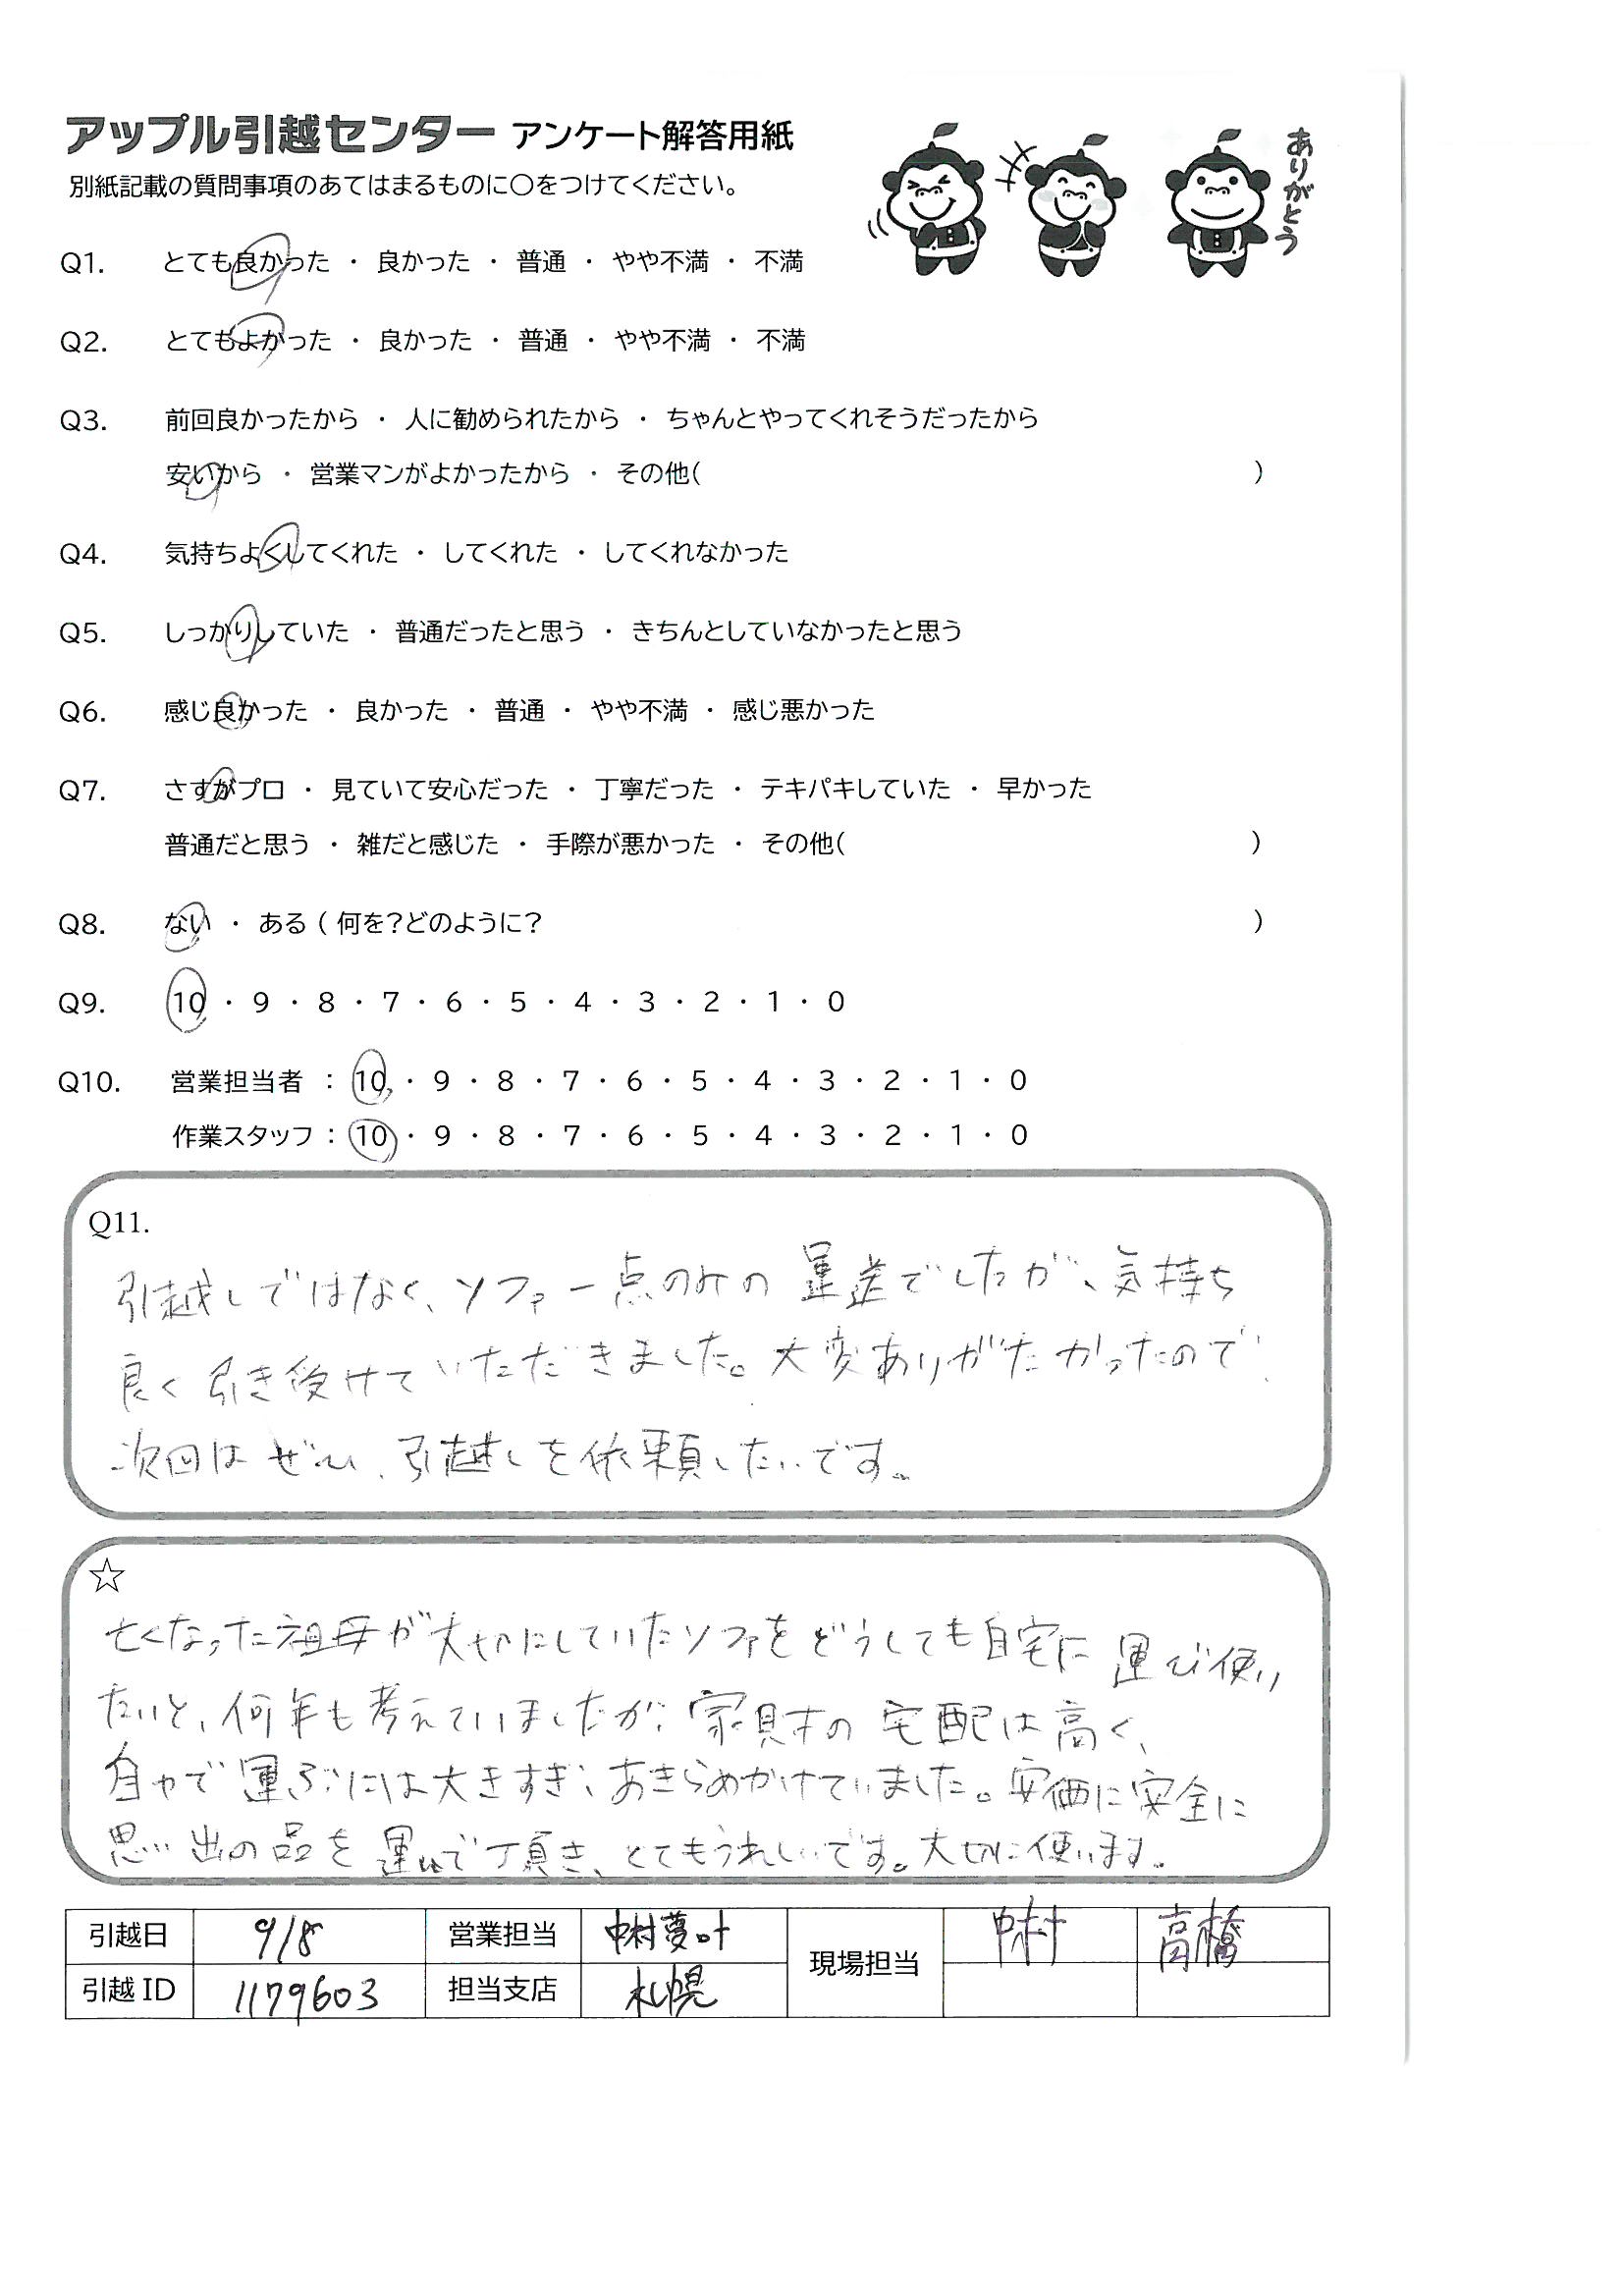 アップル引越センター アンケート解答用紙
別紙記載の質問事項のあてはまるものに〇をつけてください。
ありがとう
Q1. とても良かった ・ 良かった ・ 普通 ・ やや不満 ・ 不満
Q2. とてもよかった ・ 良かった ・ 普通 ・ やや不満 ・ 不満
Q3. 前回良かったから ・ 人に勧められたから ・ ちゃんとやってくれそうだったから
安いから ・ 営業マンがよかったから ・ その他( )
Q4. 気持ちよくしてくれた ・ してくれた ・ してくれなかった
Q5. しっかりしていた ・ 普通だったと思う ・ きちんとしていなかったと思う
Q6. 感じ良かった ・ 良かった ・ 普通 ・ やや不満 ・ 感じ悪かった
Q7. さすがプロ ・ 見ていて安心だった ・ 丁寧だった ・ テキパキしていた ・ 早かった
普通だと思う ・ 雑だと感じた ・ 手際が悪かった ・ その他( )
Q8. ない ・ ある ( 何を?どのように? )
Q9. 10 ・ 9 ・ 8 ・ 7 ・ 6 ・ 5 ・ 4 ・ 3 ・ 2 ・ 1 ・ 0
Q10. 営業担当者 : 10 ・ 9 ・ 8 ・ 7 ・ 6 ・ 5 ・ 4 ・ 3 ・ 2 ・ 1 ・ 0
作業スタッフ : 10 ・ 9 ・ 8 ・ 7 ・ 6 ・ 5 ・ 4 ・ 3 ・ 2 ・ 1 ・ 0
Q11.
引越しではなく、ソファ一点のみの運送でしたが、気持ち
良く引き受けていただきました。大変ありがたかったので、
次回はぜひ、引越しを依頼したいです。
☆
亡くなった祖母が大切にしていたソファをどうしても自宅に運び使い
たいと、何年も考えていましたが、家具材の宅配は高く、
自力で運ぶには大きすぎ、あきらめかけていました。安価に安全に
思い出の品を運んで頂き、とてもうれしいです。大切に使います。
引越日 9/8 営業担当 中村夢叶 現場担当 中村 高橋
引越ID 1179603 担当支店 札幌